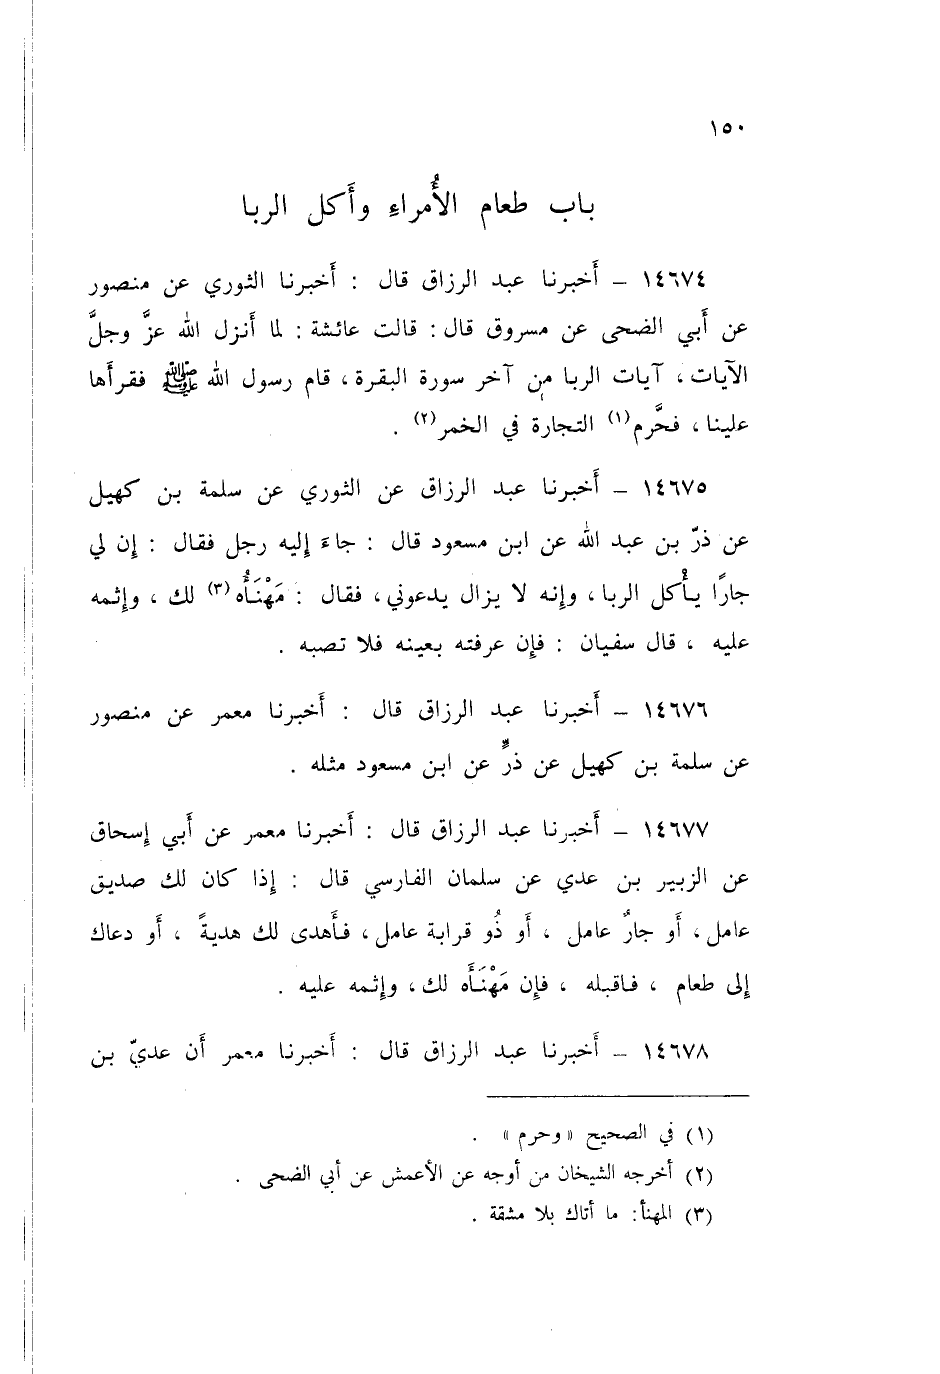 ١٥٠
باب طعام الأُمراءِ وأَكل الربا
١٤٦٧٤ – أَخبرنا عبد الرزاق قال : أَخبرنا الثوري عن منصور
عن أَبي الضحى عن مسروق قال : قالت عائشة : لما أَنزل الله عزَّ وجلَّ
الآيات ، آيات الربا من آخر سورة البقرة ، قام رسول الله ﷺ فقرأَها
علينا ، فحَّرم(١) التجارة في الخمر(٢) .
١٤٦٧٥ – أَخبرنا عبد الرزاق عن الثوري عن سلمة بن كهيل
عن ذرّ بن عبد الله عن ابن مسعود قال : جاءَ إِليه رجل فقال : إِن لي
جارًا يأْكل الربا ، وإِنه لا يزال يدعوني ، فقال : مَهْنَأُه(٣) لك ، وإِثمه
عليه ، قال سفيان : فإِن عرفته بعينه فلا تصبه .
١٤٦٧٦ – أَخبرنا عبد الرزاق قال : أَخبرنا معمر عن منصور
عن سلمة بن كهيل عن ذرٍّ عن ابن مسعود مثله .
١٤٦٧٧ – أَخبرنا عبد الرزاق قال : أَخبرنا معمر عن أَبي إِسحاق
عن الزبير بن عدي عن سلمان الفارسي قال : إِذا كان لك صديق
عامل ، أَو جارٌ عامل ، أَو ذُو قرابة عامل ، فأَهدى لك هديةً ، أَو دعاك
إِلى طعام ، فاقبله ، فإِن مَهْنَأَه لك ، وإِثمه عليه .
١٤٦٧٨ – أَخبرنا عبد الرزاق قال : أَخبرنا معمر أَن عديّ بن
(١) في الصحيح « وحرم » .
(٢) أخرجه الشيخان من أوجه عن الأعمش عن أبي الضحى .
(٣) المهنأ: ما أتاك بلا مشقة .